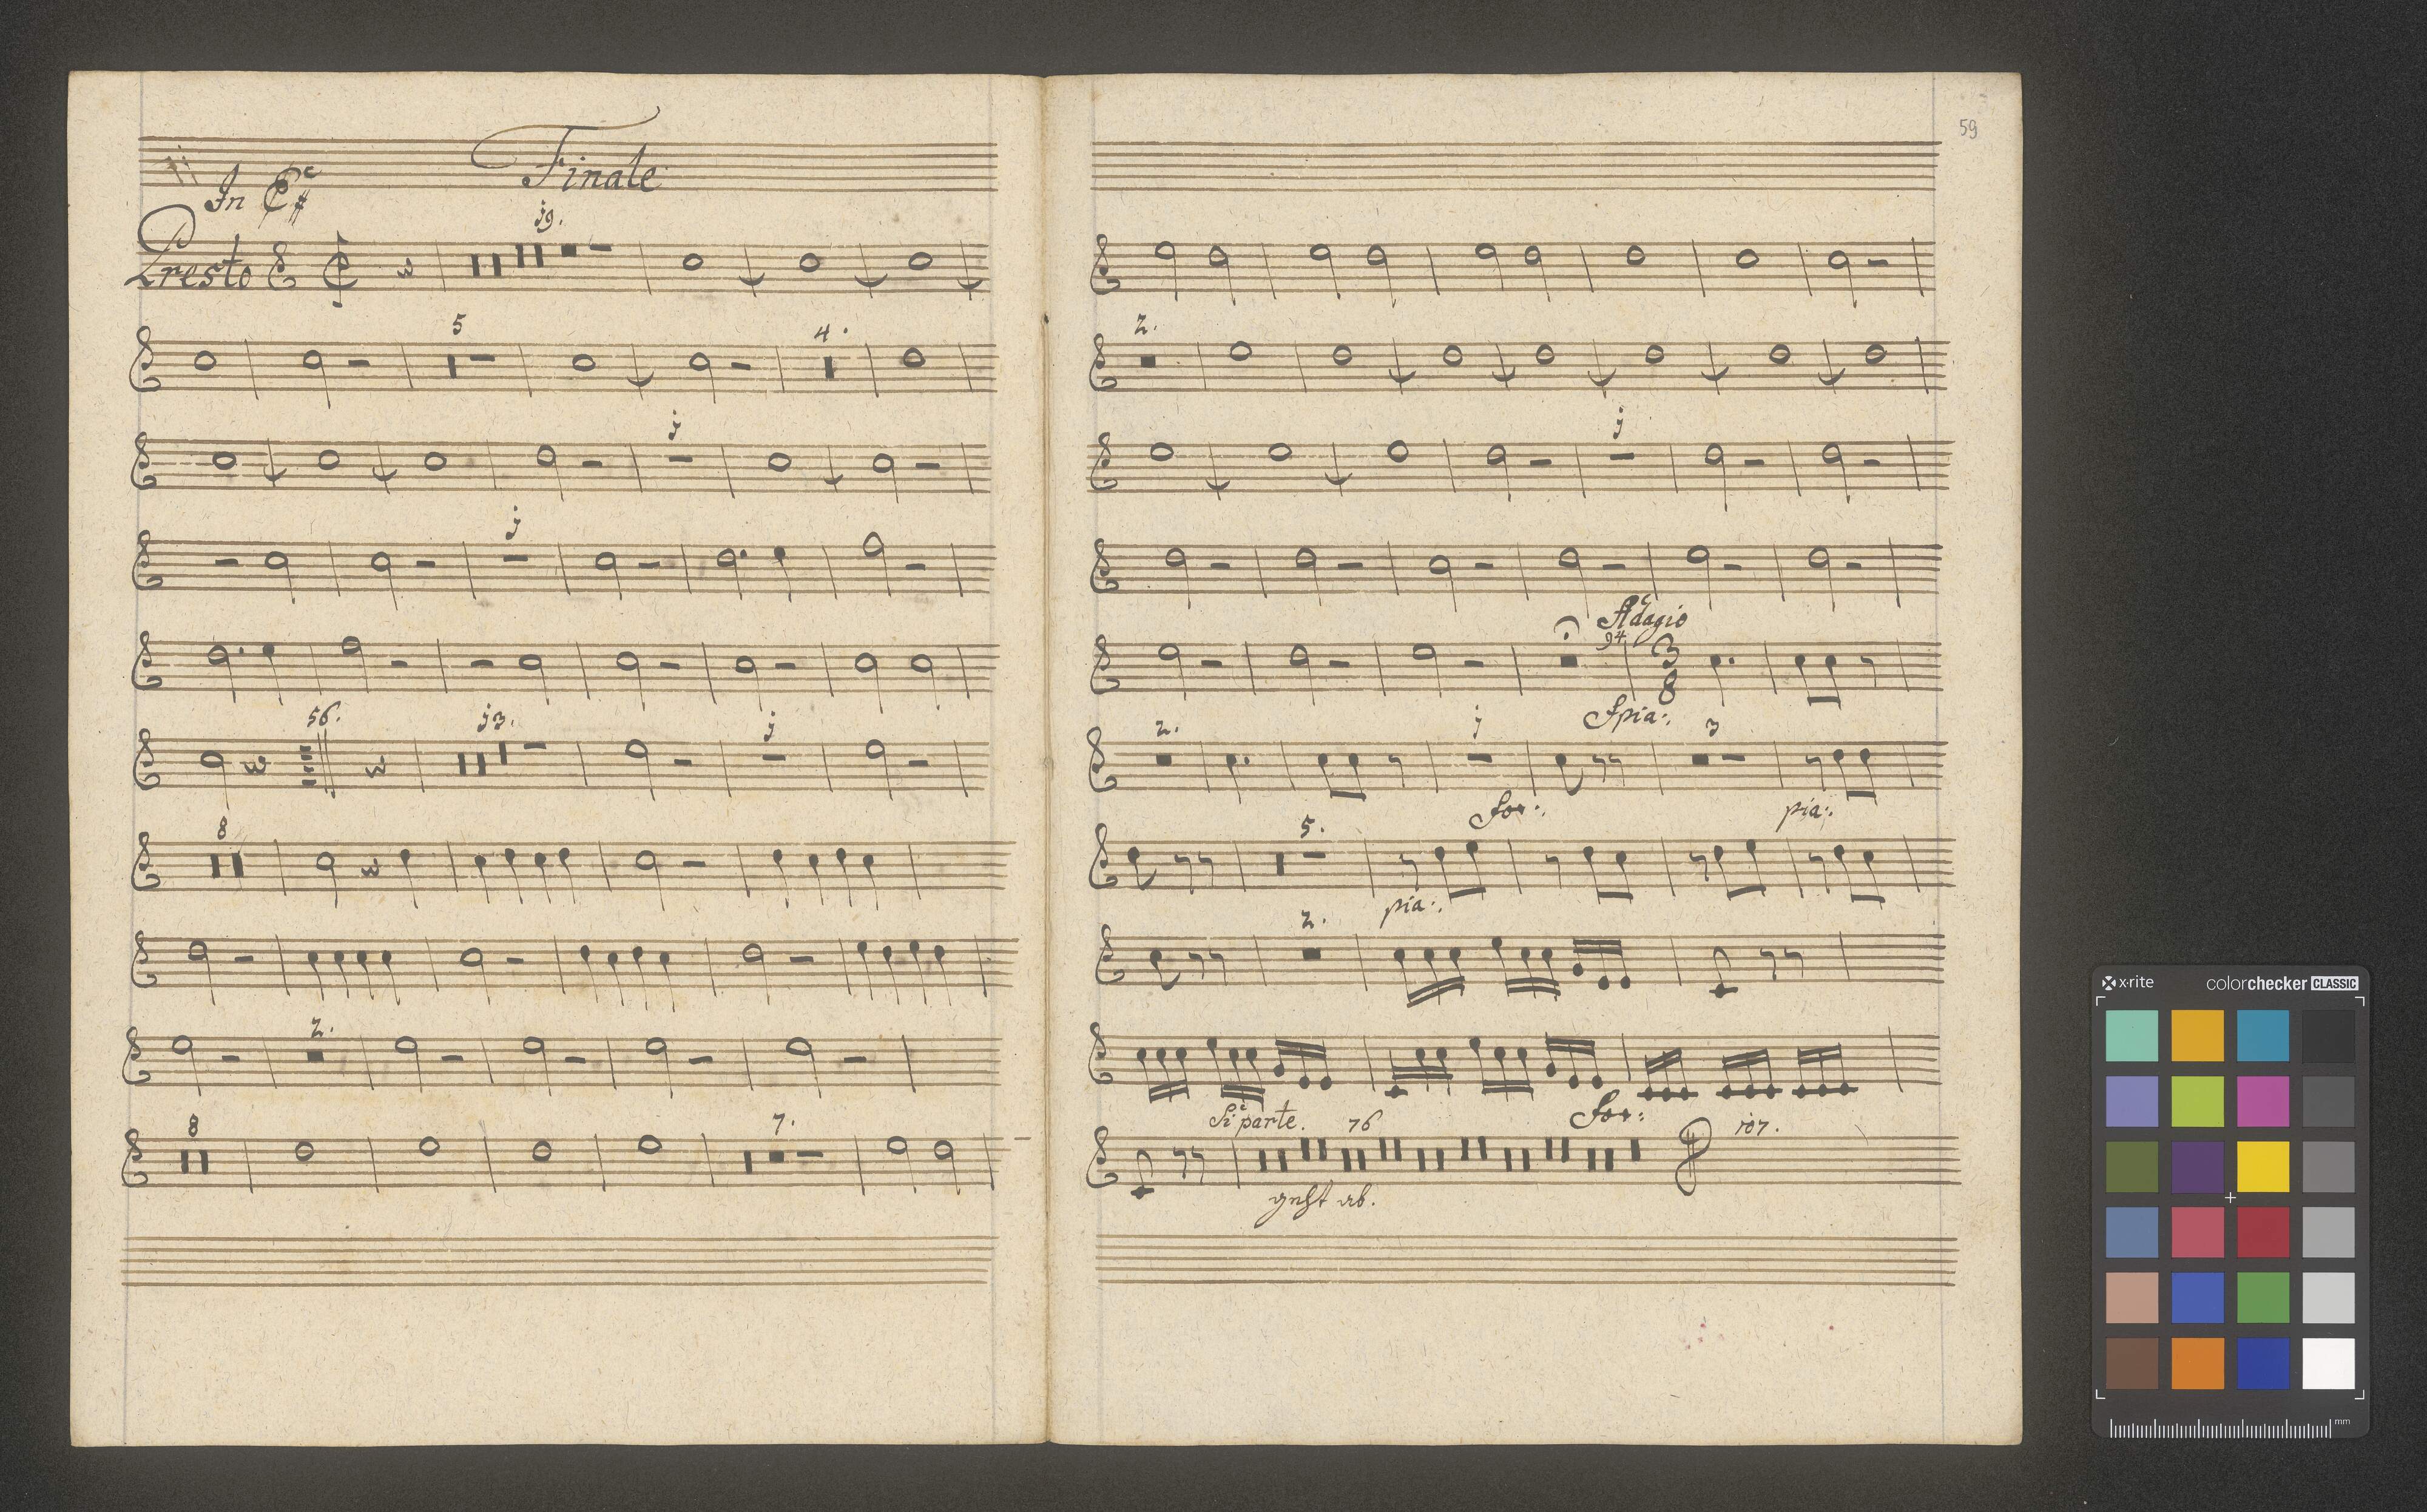 Finale
In C#
Presto
j9.
5
4.
j
j
56.
j3.
j
8
2.
8
7.
59
2.
j
Adagio
94.
3
8
Spia:
2.
j
3
for:
pia:
5.
pia:
2.
for:
Si parte.
76
107.
geht ab.
x·rite
colorchecker CLASSIC
mm